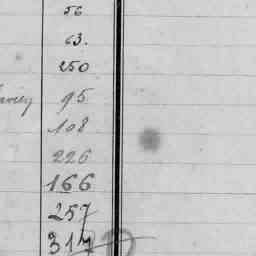 56
63.
250
95
108
226
166
257
317